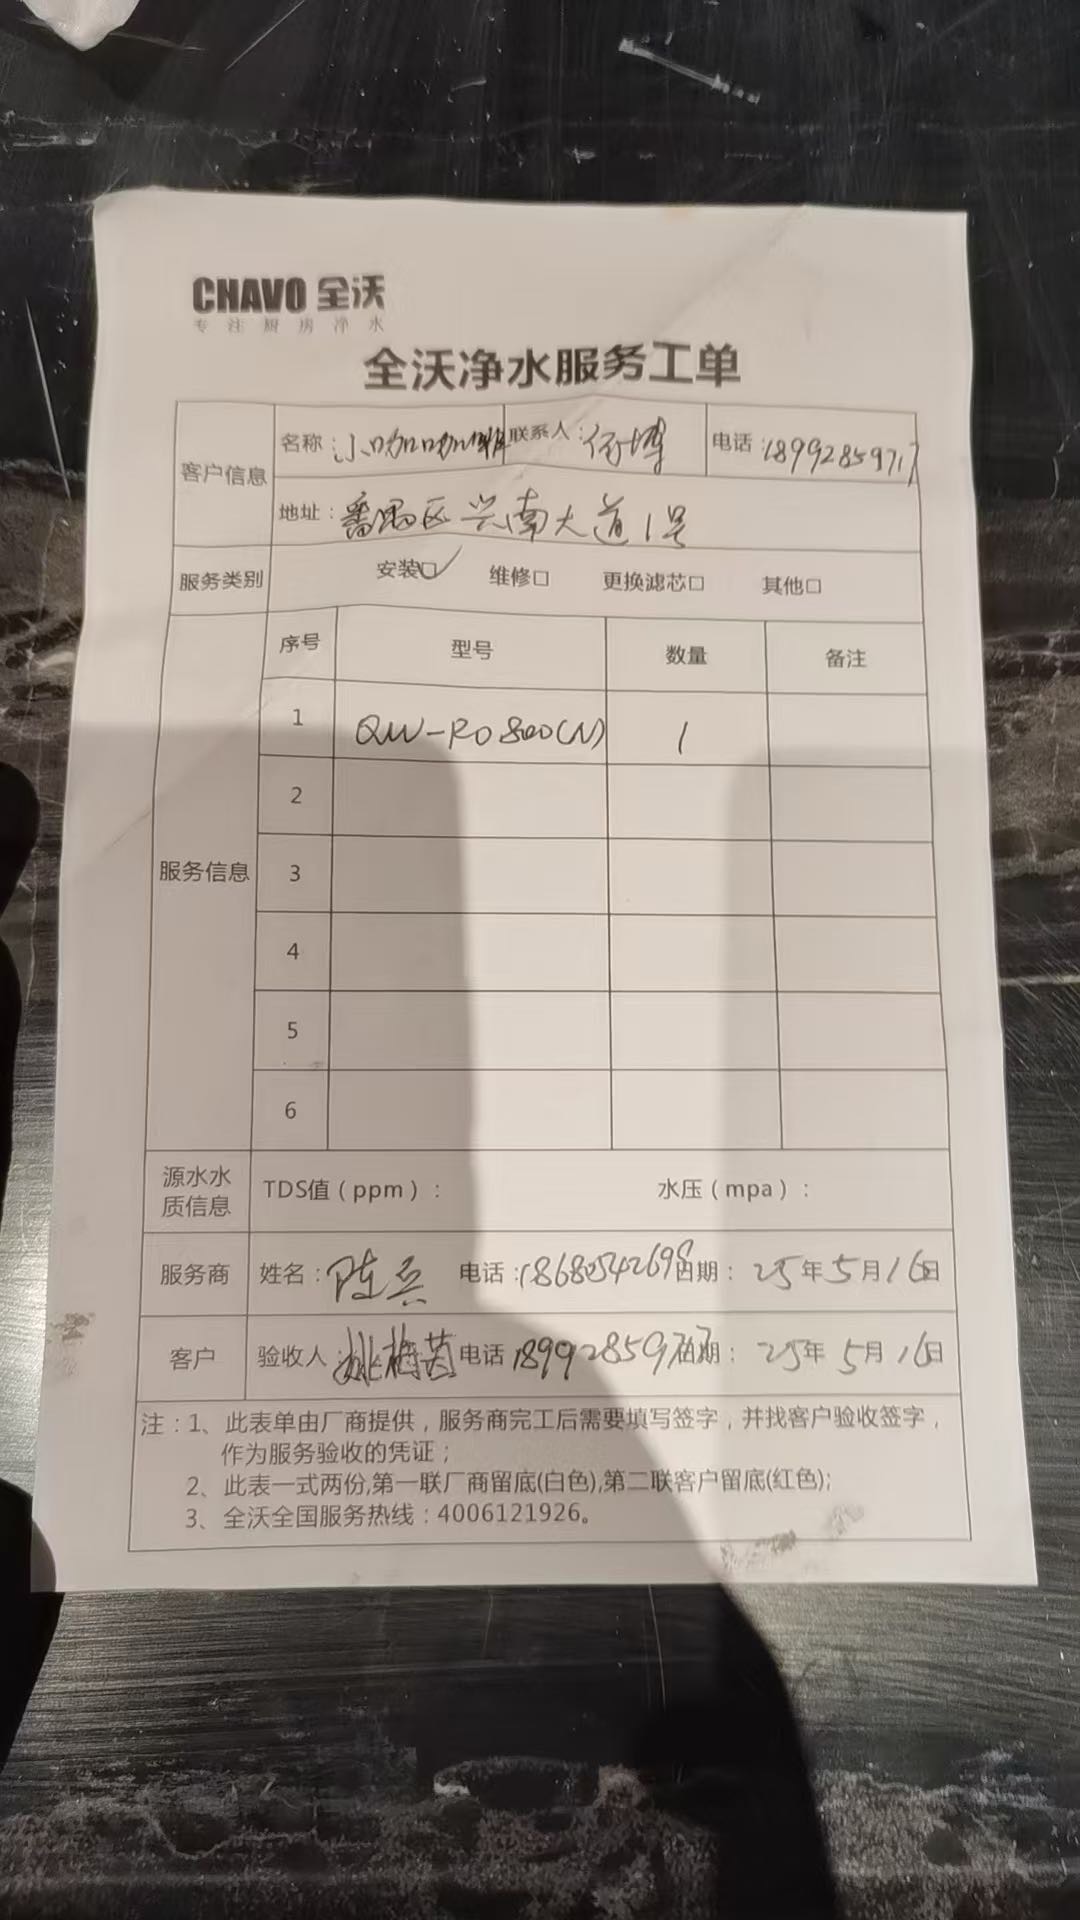 CHAVO 全沃
专注厨房净水
全沃净水服务工单
客户信息
名称：小咖咖啡 联系人： 电话：18992859717
地址：番禺区兴南大道1号
服务类别 安装☑ 维修□ 更换滤芯□ 其他□
服务信息
序号 型号 数量 备注
1 QW-RO800(N) 1
2
3
4
5
6
源水水质信息 TDS值（ppm）： 水压（mpa）：
服务商 姓名：陈兵 电话：18680542698 日期：25年5月16日
客户 验收人：姚梅茵 电话 日期：25年5月16日
注：1、此表单由厂商提供，服务商完工后需要填写签字，并找客户验收签字，
作为服务验收的凭证；
2、此表一式两份,第一联厂商留底(白色),第二联客户留底(红色);
3、全沃全国服务热线：4006121926。